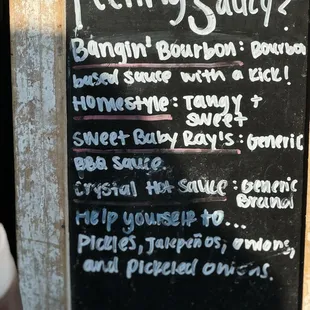 Feeling Saucy?
Bangin' Bourbon: Bourbon
based sauce with a kick!
Homestyle: Tangy +
sweet
Sweet Baby Ray's: Generic
BBQ Sauce
Crystal Hot Sauce: Generic
Brand
Help yourself to...
Pickles, Jalepeños, onions,
and pickeled onions.